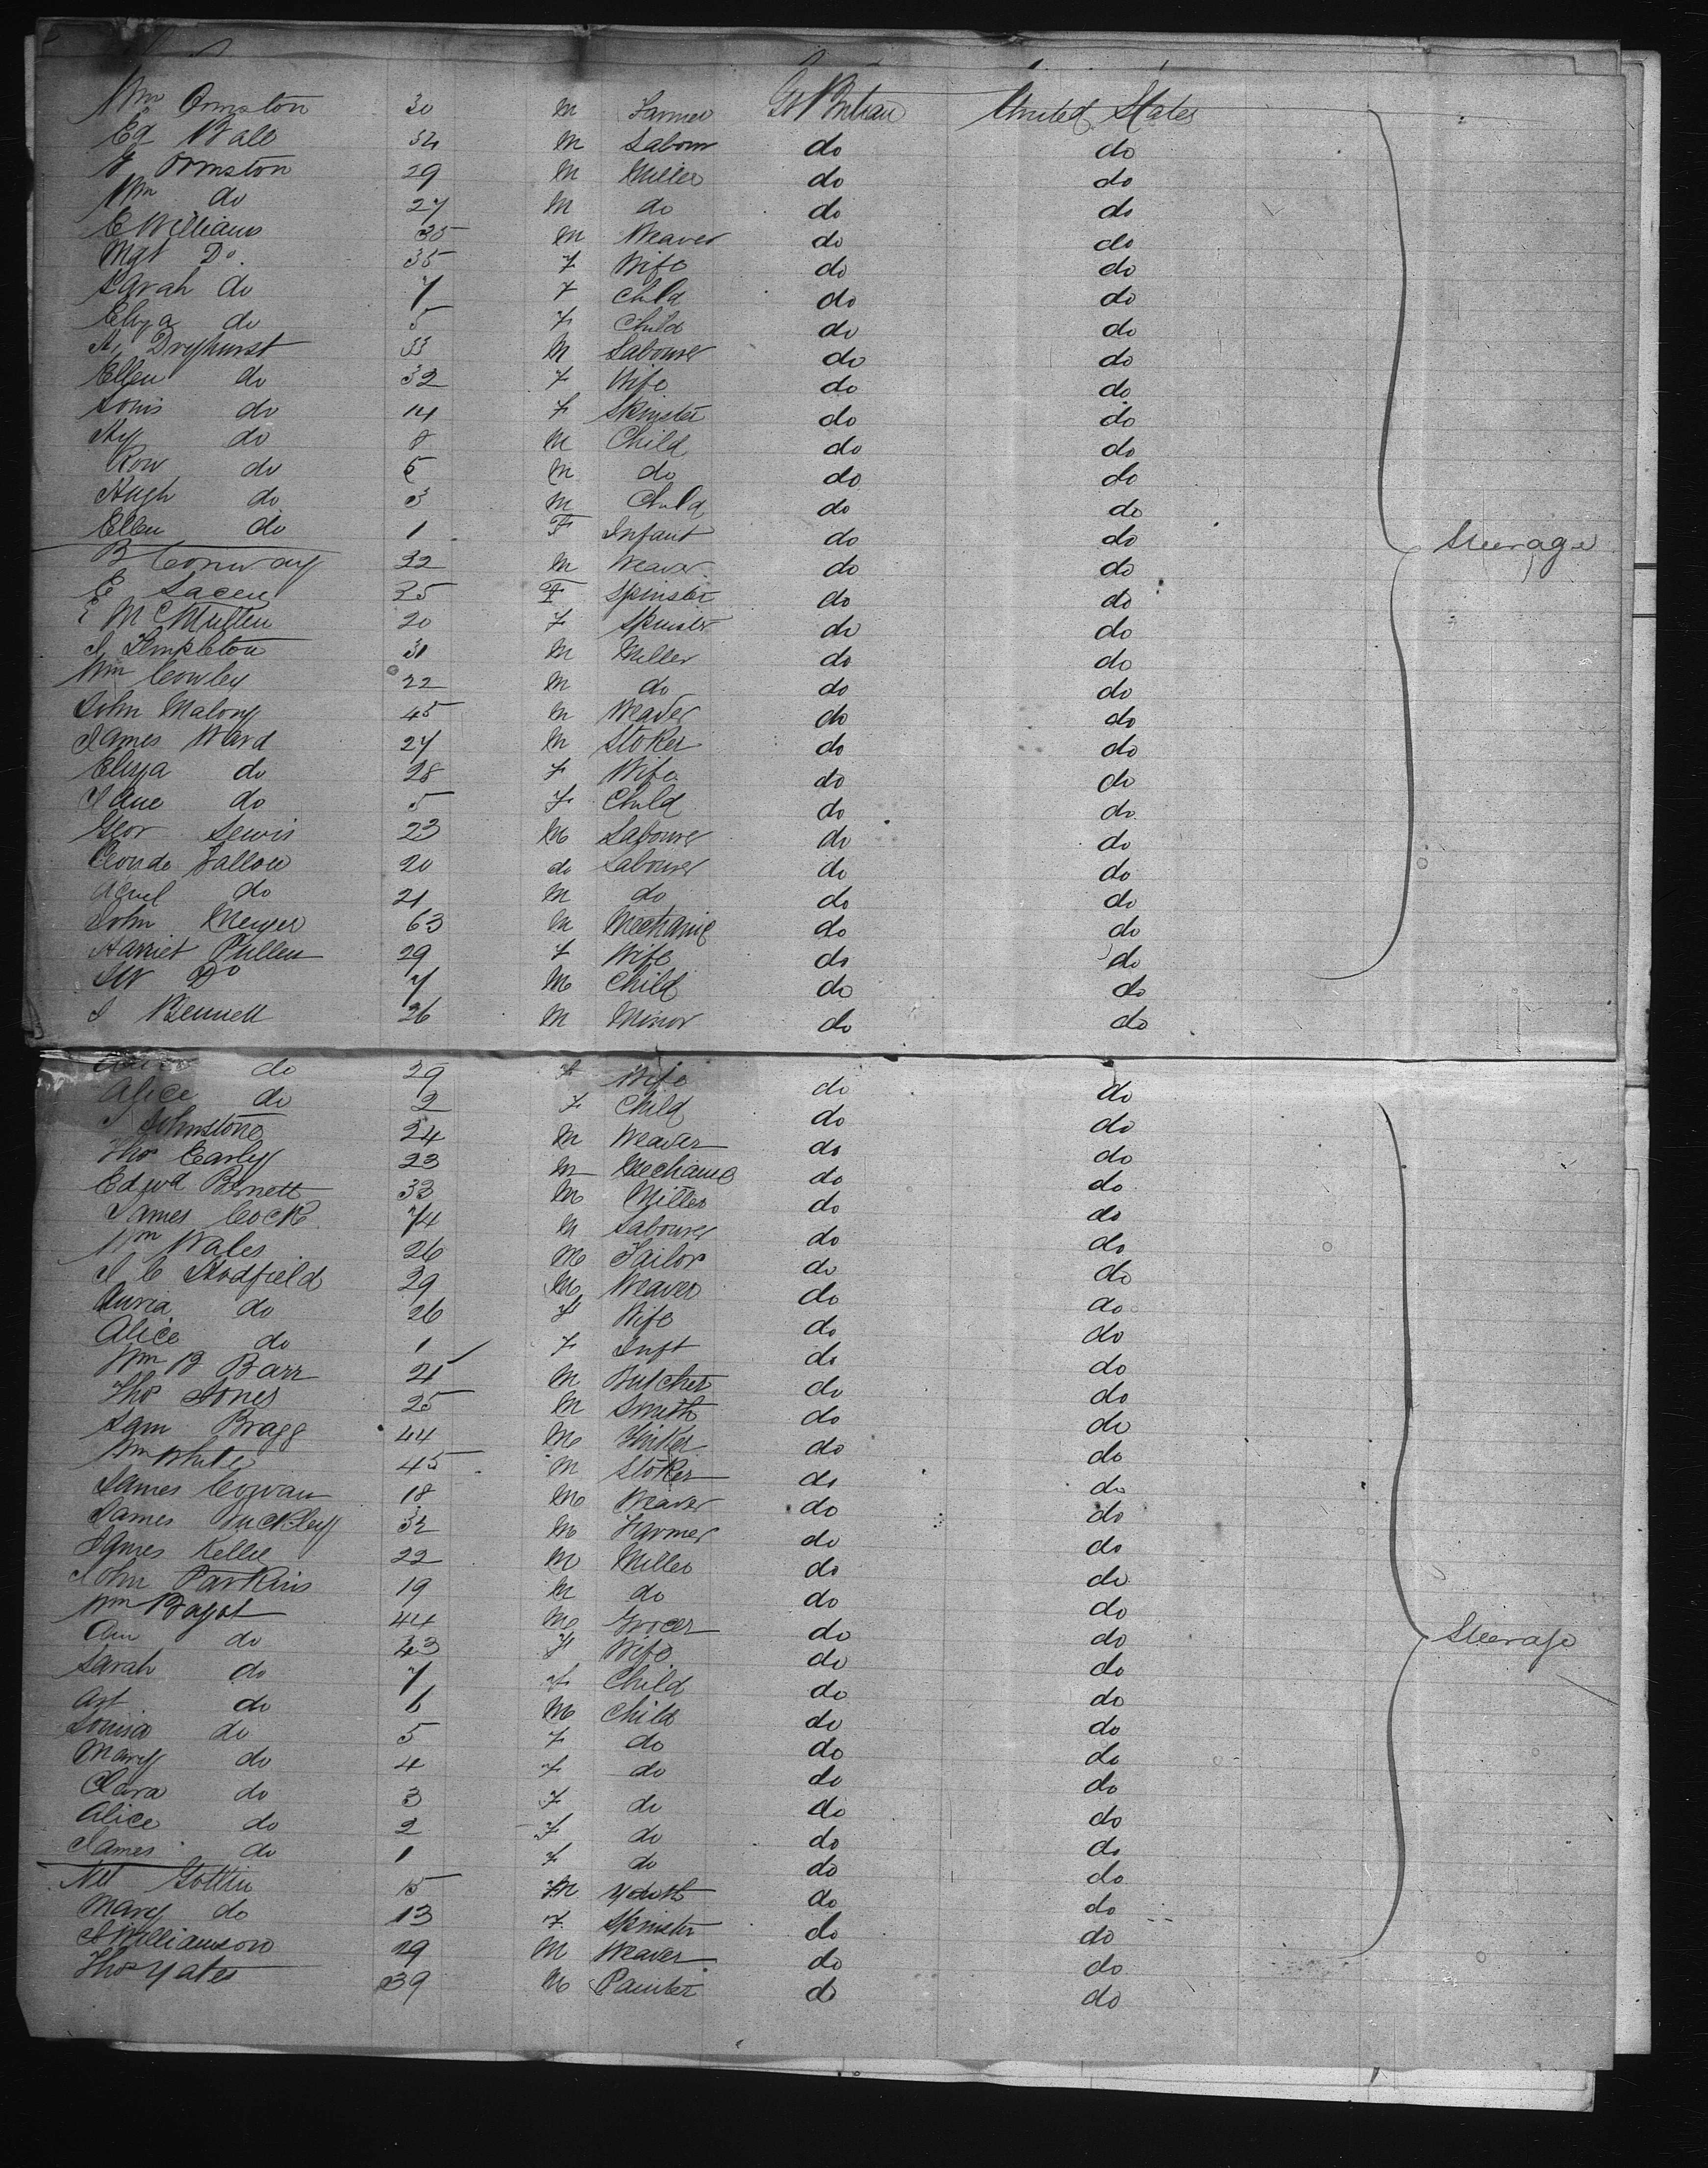 Wm Ormston 30 M Farmer Gt Britain United States
Ed Ball 32 M Labour do do
J Ormston 29 M Miller do do
Wm do 27 M do do do
E Williams 35 M Weaver do do
Mgt Do. 35 F Wife do do
Sarah do 7 F Child do do
Eliza do 5 F Child do do
Dryhurst 33 M Labourer do do
Ellen do 32 F Wife do do
Louis do 14 F Spinster do do
Hy do 8 M Child do do
Row do 6 M do do do
Hugh do 3 M Child do do
Ellen do 1 F Infant do do
Steerage
B Conway 22 M Weaver do do
E Lacey 25 F Spinster do do
E McMullen 20 F Spinster do do
J Templeton 31 M Miller do do
Wm Cowley 22 M do do do
John Malony 45 M Weaver do do
James Ward 27 M Stoker do do
Eliza do 28 F Wife do do
Jane do 5 F Child do do
Geor Lewis 23 M Labourer do do
20 do Labourer do do
do 21 M do do do
John 63 M Mechanic do do
Harriet Pullen 29 F Wife do do
JW Do 7 M Child do do
J Bennett 26 M Minor do do
do 29 F Wife do do
Alice do 2 F Child do do
J Johnstone 24 M Weaver do do
Thos Early 23 M Mechanic do do
Edwd Burnett 33 M Miller do do
James Cock 74 M Labourer do do
Wm Wales 26 M Tailor do do
J C Hadfield 29 M Weaver do do
do 26 F Wife do do
Alice do 1 F Inft do do
Wm B Barr 21 M Butcher do do
Thos Jones 25 M Smith do do
Sam Bragg 44 M Tinker do do
Wm White 45 M Stoker do do
James Cowan 18 M Weaver do do
James Buckley 32 M Farmer do do
James Kellie 22 M Miller do do
John Parkins 19 M do do do
Wm Bagot 44 M Grocer do do
Steerage
Ann do 43 F Wife do do
Sarah do 7 F Child do do
Art do 6 M Child do do
Louisa do 5 F do do do
Mary do 4 F do do do
Clara do 3 F do do do
Alice do 2 F do do do
James do 1 F do do do
15 M Youth do do
Mary do 13 F Spinster do do
J Williamson 29 M Weaver do do
Thos Yates 39 M Painter do do